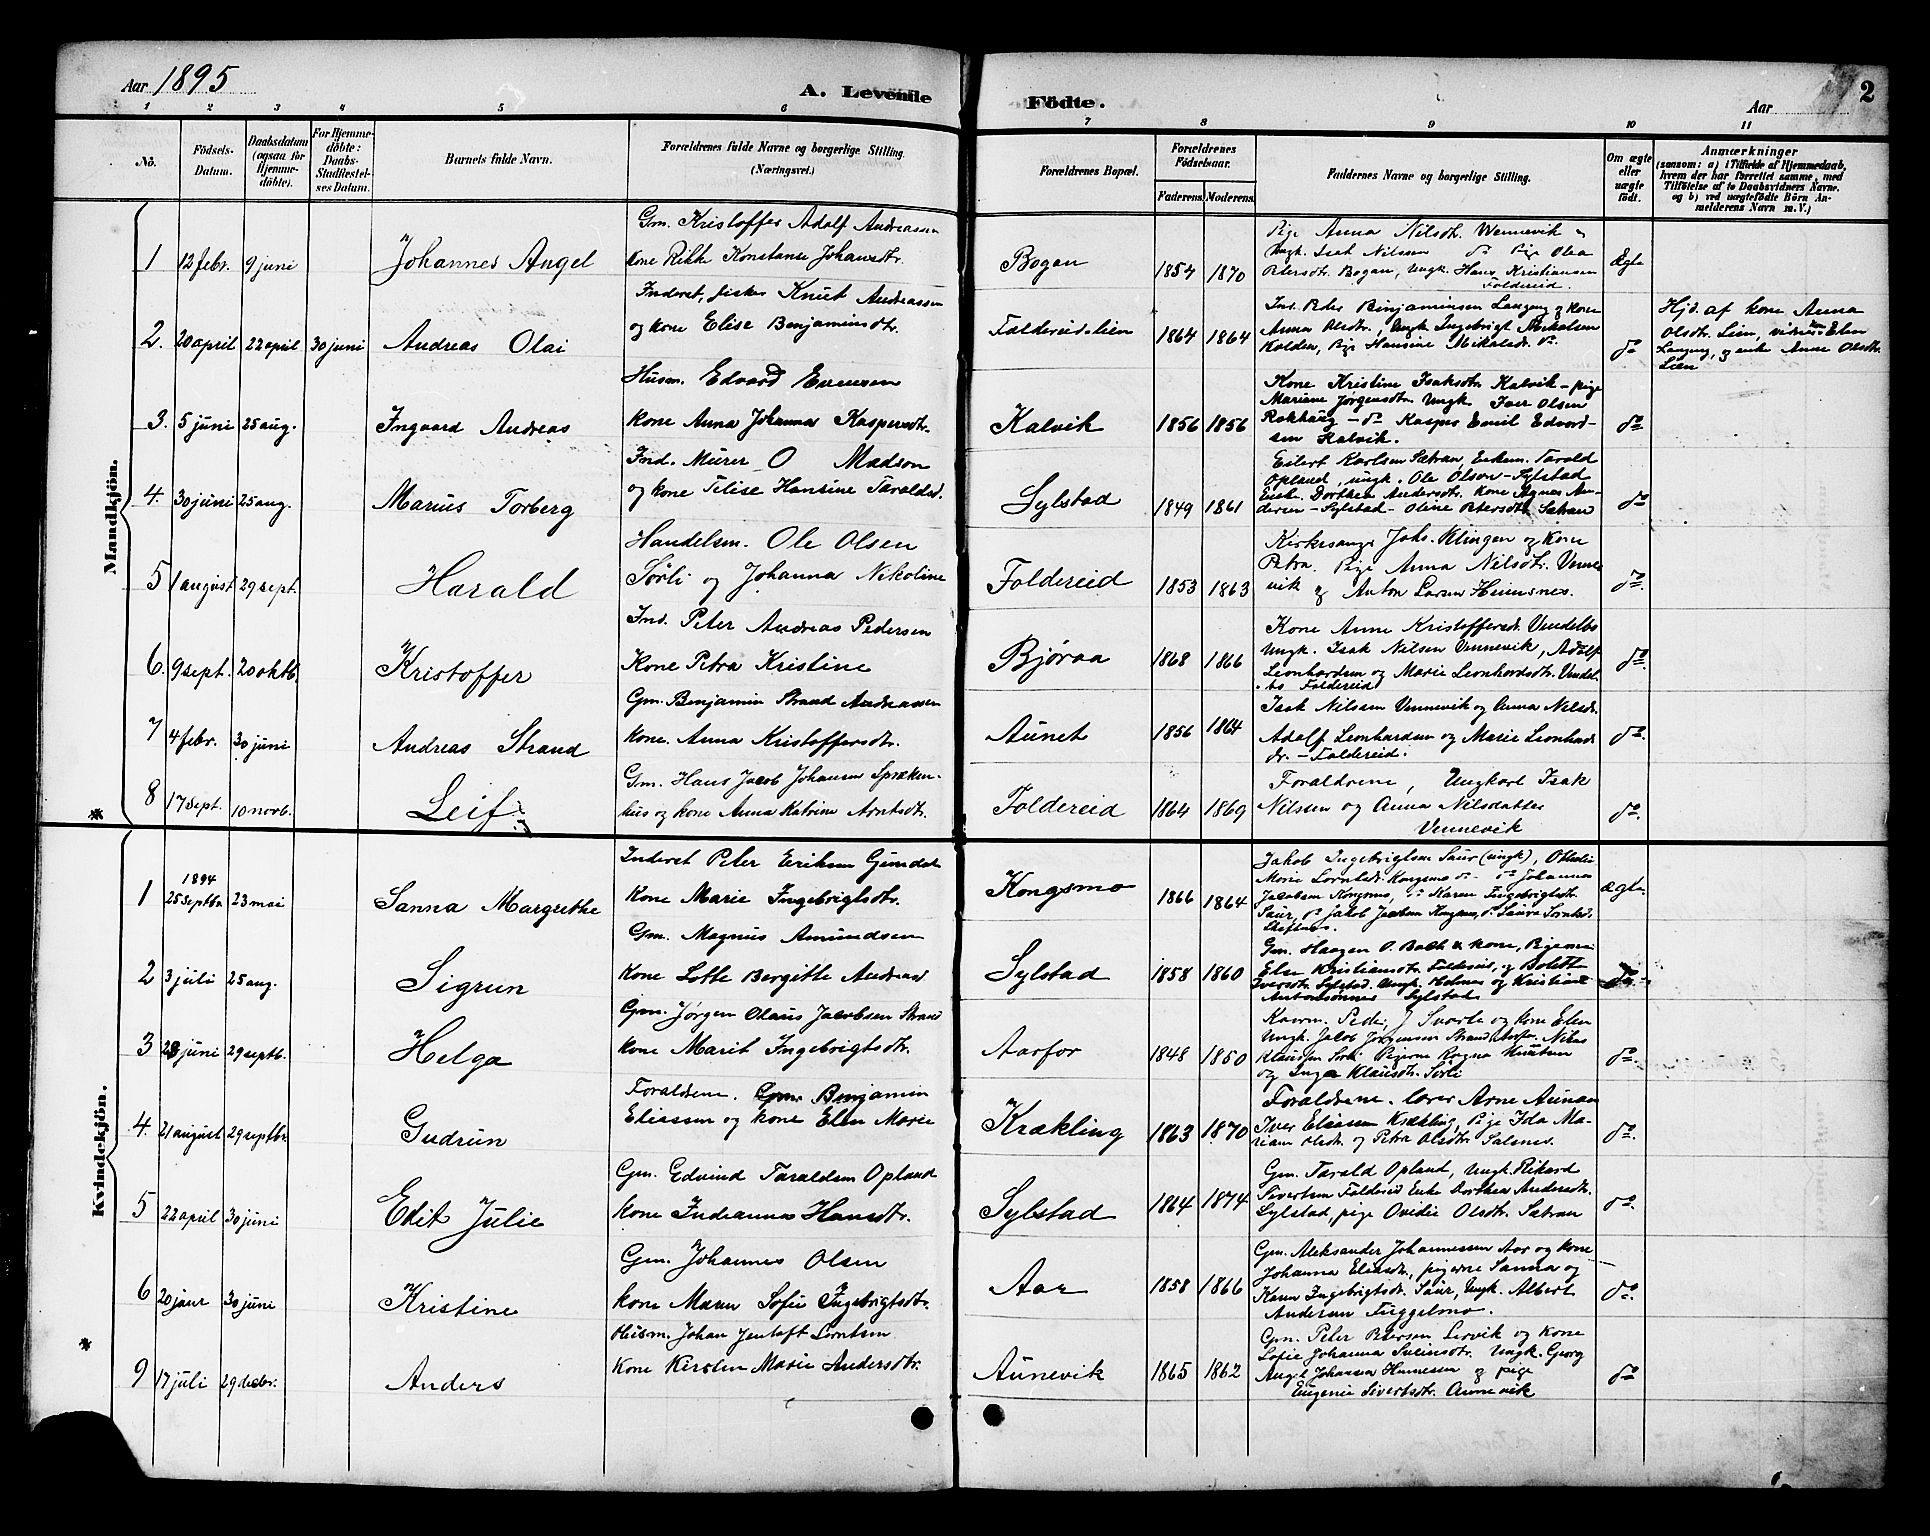 Aar 1895
A. Levende Födte.
Aar
2
1 2 3 4 5 6 7 8 9 10 11
No.
Födsels-Datum.
Daabsdatum (ogsaa for Hjemmedöbte).
For Hjemmedöbte: Daabs-Stadfestelses Datum.
Barnets fulde Navn.
Forældrenes fulde Navne og borgerlige Stilling. (Næringsvei.)
Forældrenes Bopæl.
Forældrenes Födselsaar.
Faderens
Moderens
Faddernes Navne og borgerlige Stilling.
Om ægte eller uægte födt.
Anmærkninger
(saasom: a) i Tilfælde af Hjemmedaab, hvem der har forrettet samme, med Tilföielse af to Daabsvidners Navne. og b) ved uægtefödte Börn Anmelderens Navn m. V.)
Mandkjön.
1 12 febr. 9 juni Johannes Angel
Gm. Kristoffer Adolf Andreassen
kone Rikke Konstanse Johansdtr.
Bogan 1854 1870
Pige Anna Nilsdtr. Wennevik &
Ungk. Isak Nilssen do Pige Olea
Petersdtr. Bogan, Ungk. Hans Kristiansen
Foldereid
Ægte
2. 20 april 22 april 30 juni Andreas Olai
Inderst, fisker Knut Andreassen
og kone Elise Benjaminsdtr.
Foldereidslien 1864 1864
Ind. Peter Benjaminsen Langeng og kone
Anna Olsdtr., Ungk Ingebrigt Mikalsen
Kolden, Pige Hansine Mikalsdr. do
do
Hjd. af kone Anna
Olsdtr. Lien, vidner Elen
Langeng, og enke Anne Olsdtr.
Lien
3. 5 juni 25 aug. Ingvard Andreas
Husm. Edvard Evensen
kone Anna Johannas Kaspersdtr.
Kalvik 1856 1856
Kone Kristine Isaksdtr Kalvik - pige
Mariane Jørgensdtr. Ungk Iver Olsen
Rokhaug - do Kasper Emil Edvardsen
Kalvik.
do
4. 30 juni 25 aug. Marius Torberg
Ind. Murer O Madson
og kone Telise Hansine Taraldsd.
Sylstad 1849 1861
Eilert Karlsen Sætran, Enkem. Tarald
Opland, ungk. Ole Olsen - Sylstad
Enk. Dorthea Andersdtr. Kone Agnes Andersen
- Sylstad - Oline Petersdtr Sætran
do
5 1 august 29 sept. Harald
Handelsm. Ole Olsen
Sørli og Johanna Nikoline
Foldereid 1853 1863
Kirkesanger Johs. Klingen og kone
Petra. Pige Anna Nilsdtr. Vennevik
og Anton Larsen Heimsnes.
do
6. 9 sept. 20 oktb. Kristoffer
Ind. Peter Andreas Pedersen
Kone Petra Kristine
Bjøraa 1868 1866
Kone Anne Kristoffersdr. Vendelbo
Ungk. Isak Nilsen Vennevik, Adolf
Leonhardsen og Marie Leonhardsdtr. Vendelbo
Foldereid
do
7 4 febr. 30 juni Andreas Strand
Gm. Benjamin Strand Andreassen
kone. Anna Kristoffersdtr.
Aunet 1856 1864
Isak Nilssen Vennevik og Anna Nilsdr.
Adolf Leonhardsen og Marie Leonhardsdr.
- Foldereid.
do
8 17 sept. 10 novb. Leif
Gm. Hans Jacob Johansen Sprækenhus
og kone Anna Katrine Arntsdtr.
Foldereid 1864 1869
Foraldrene, Ungkarl Isak
Nilssen og Anna Nilsdatter
Vennevik
do
Kvindekjön.
1 1894 25 septbr 23 mai Sanna Margrethe
Inderst Peter Eriksen Gjendal
kone Marie Ingebrigtsdtr.
Kongsmo 1866 1864
Jakob Ingebrigtsen Saur (ungk),
Ægte
2 3 juli 25 aug. Sigrun
Gm. Magnus Amundsen
kone Lotte Bergitte Andreasd
Sylstad 1858 1860
Elen Kristiansdtr. Foldereid, og Bolette
Iversdtr. Sylstad. Ungk. Helmer og Kristian
Antonsønner Sylstad
do
3 28 juni 29 septb. Helga
Gm. Jørgen Olaus Jacobsen Strand
kone Marit Ingebrigtsdtr.
Aarfor 1848 1850
Ungk. Jakob Jørgensen Strand Aarfor. Niklas
Klaussen Sørli Pigerne Ragna Knutsen
og Inga Klausdtr. Sørli
do
4. 21 august 29 septbr Gudrun
Foraldrene. Gm. Benjamin
Eliassen og kone Elen Marie
Krækling 1863 1870
Foraldrene. lærer Arne Aunan
Iver Eliassen Krækling, Pige Ida Mariam
Olsdr. og Petra Olsdtr. Salsnes.
do
5 22 april 30 juni Edit Julie
Gm. Edvind Taraldsen Opland
kone Indianna Hansdtr.
Sylstad 1864 1874
Gm. Tarald Opland, Ungk. Rikard
Sivertsen Foldereid Enke Dorthea Andersdtr.
Sylstad, pige Ovidie Olsdtr. Sætran
do
6 20 jaur 30 juni Kristine
Gm. Johannes Olsen
kone Maren Sofie Ingebrigtsdtr.
Aar 1858 1866
Gm. Aleksander Johannessen Aar og kone
Johanna Eliasdtr., pigerne Sanna og
Karen Ingebrigtsdtr. Saur, Ungk. Albert
Andersen Fuggelmo.
do
9 17 juli 29 decbr. Anders
Husm. Johan Jentoft Lorntsen
kone Kirsten Marie Andersdtr.
Aunevik 1865 1862
Gm. Peter Petersen Lervik og kone
Sofie Johanna Sveinsdtr. Ungk. Georg
Angel Johansen Hunnesen og pige
Eugenie Sivertsdtr. Aunevik
do